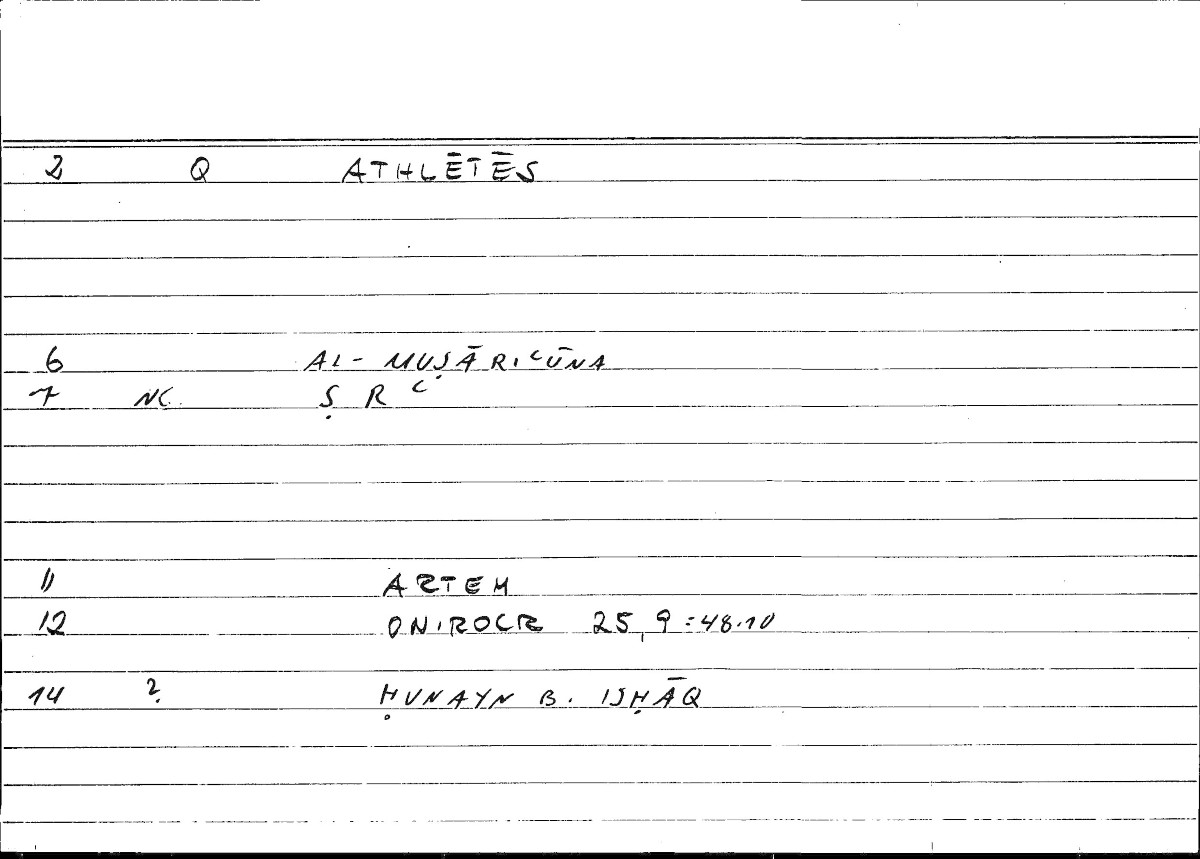 2 Q ATHLĒTĒS
6 AL-MUṢĀRIʿŪNA
7 NC. Ṣ R ʿ
11 ARTEM
12 ONIROCR 25,9:48.10
14 ? ḤUNAYN B. ISḤĀQ